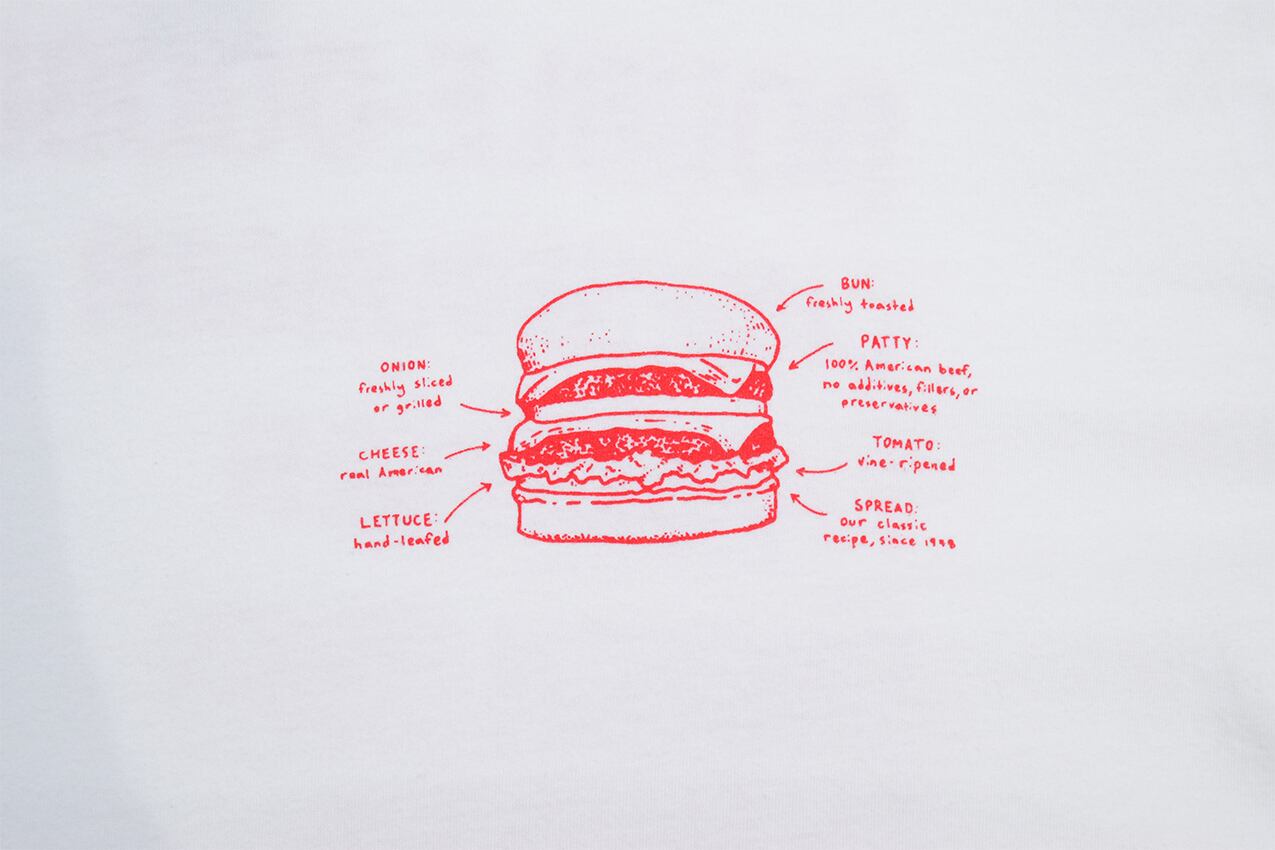 BUN:
freshly toasted
PATTY:
100% American beef,
no additives, fillers, or
preservatives
ONION:
freshly sliced
or grilled
TOMATO:
vine-ripened
CHEESE:
real American
SPREAD:
our classic
recipe, since 1948
LETTUCE:
hand-leafed